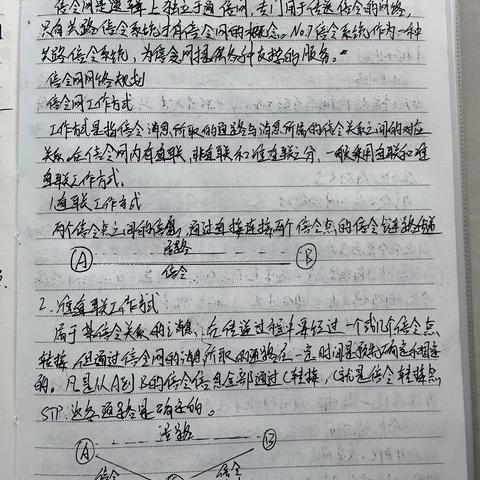 信令网是逻辑上独立于通信网，专门用于传送信令的网络，
只有共路信令系统才有信令网的概念。No.7信令系统作为一种
共路信令系统，为信令网提供各种支持的服务。
信令网网络规划
信令网工作方式
工作方式是指信令消息所取的通路与消息所属的信令关系之间的对应
关系。在信令网内有直联，非直联和准直联之分，一般采用直联和准
直联工作方式。
1.直联工作方式
两个信令点之间的信息，通过直接连接两个信令点的信令链路传递
话路
A B
信令
2.准直联工作方式
属于某信令关系的消息，在传送过程中要经过一个或几个信令点
转接，但通过信令网的消息所取的通路在一定时间是预先确定和固定
的。凡是从A到B的信令信息全部通过C转接，C就是信令转接点
STP. 这条通路是确定的。
话路
A B
信令 信令